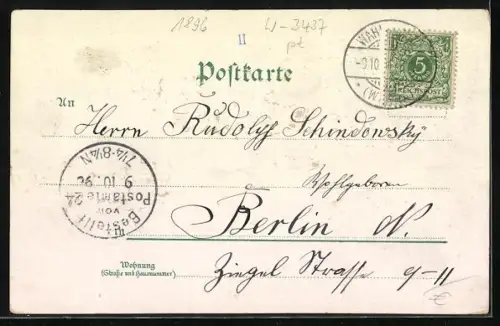 1896
W-3437
pt
II
Postkarte
WAHL
-9.10
(W
5
REICHSPOST
An
Herrn Rudolf Schindowsky
Wohlgeboren
Berlin N.
Ziegel Strasse 9-11
Wohnung
(Straße und Hausnummer)
Bestellt
vom
Postamte 24
9 10. 96
7¼-8¼N
€